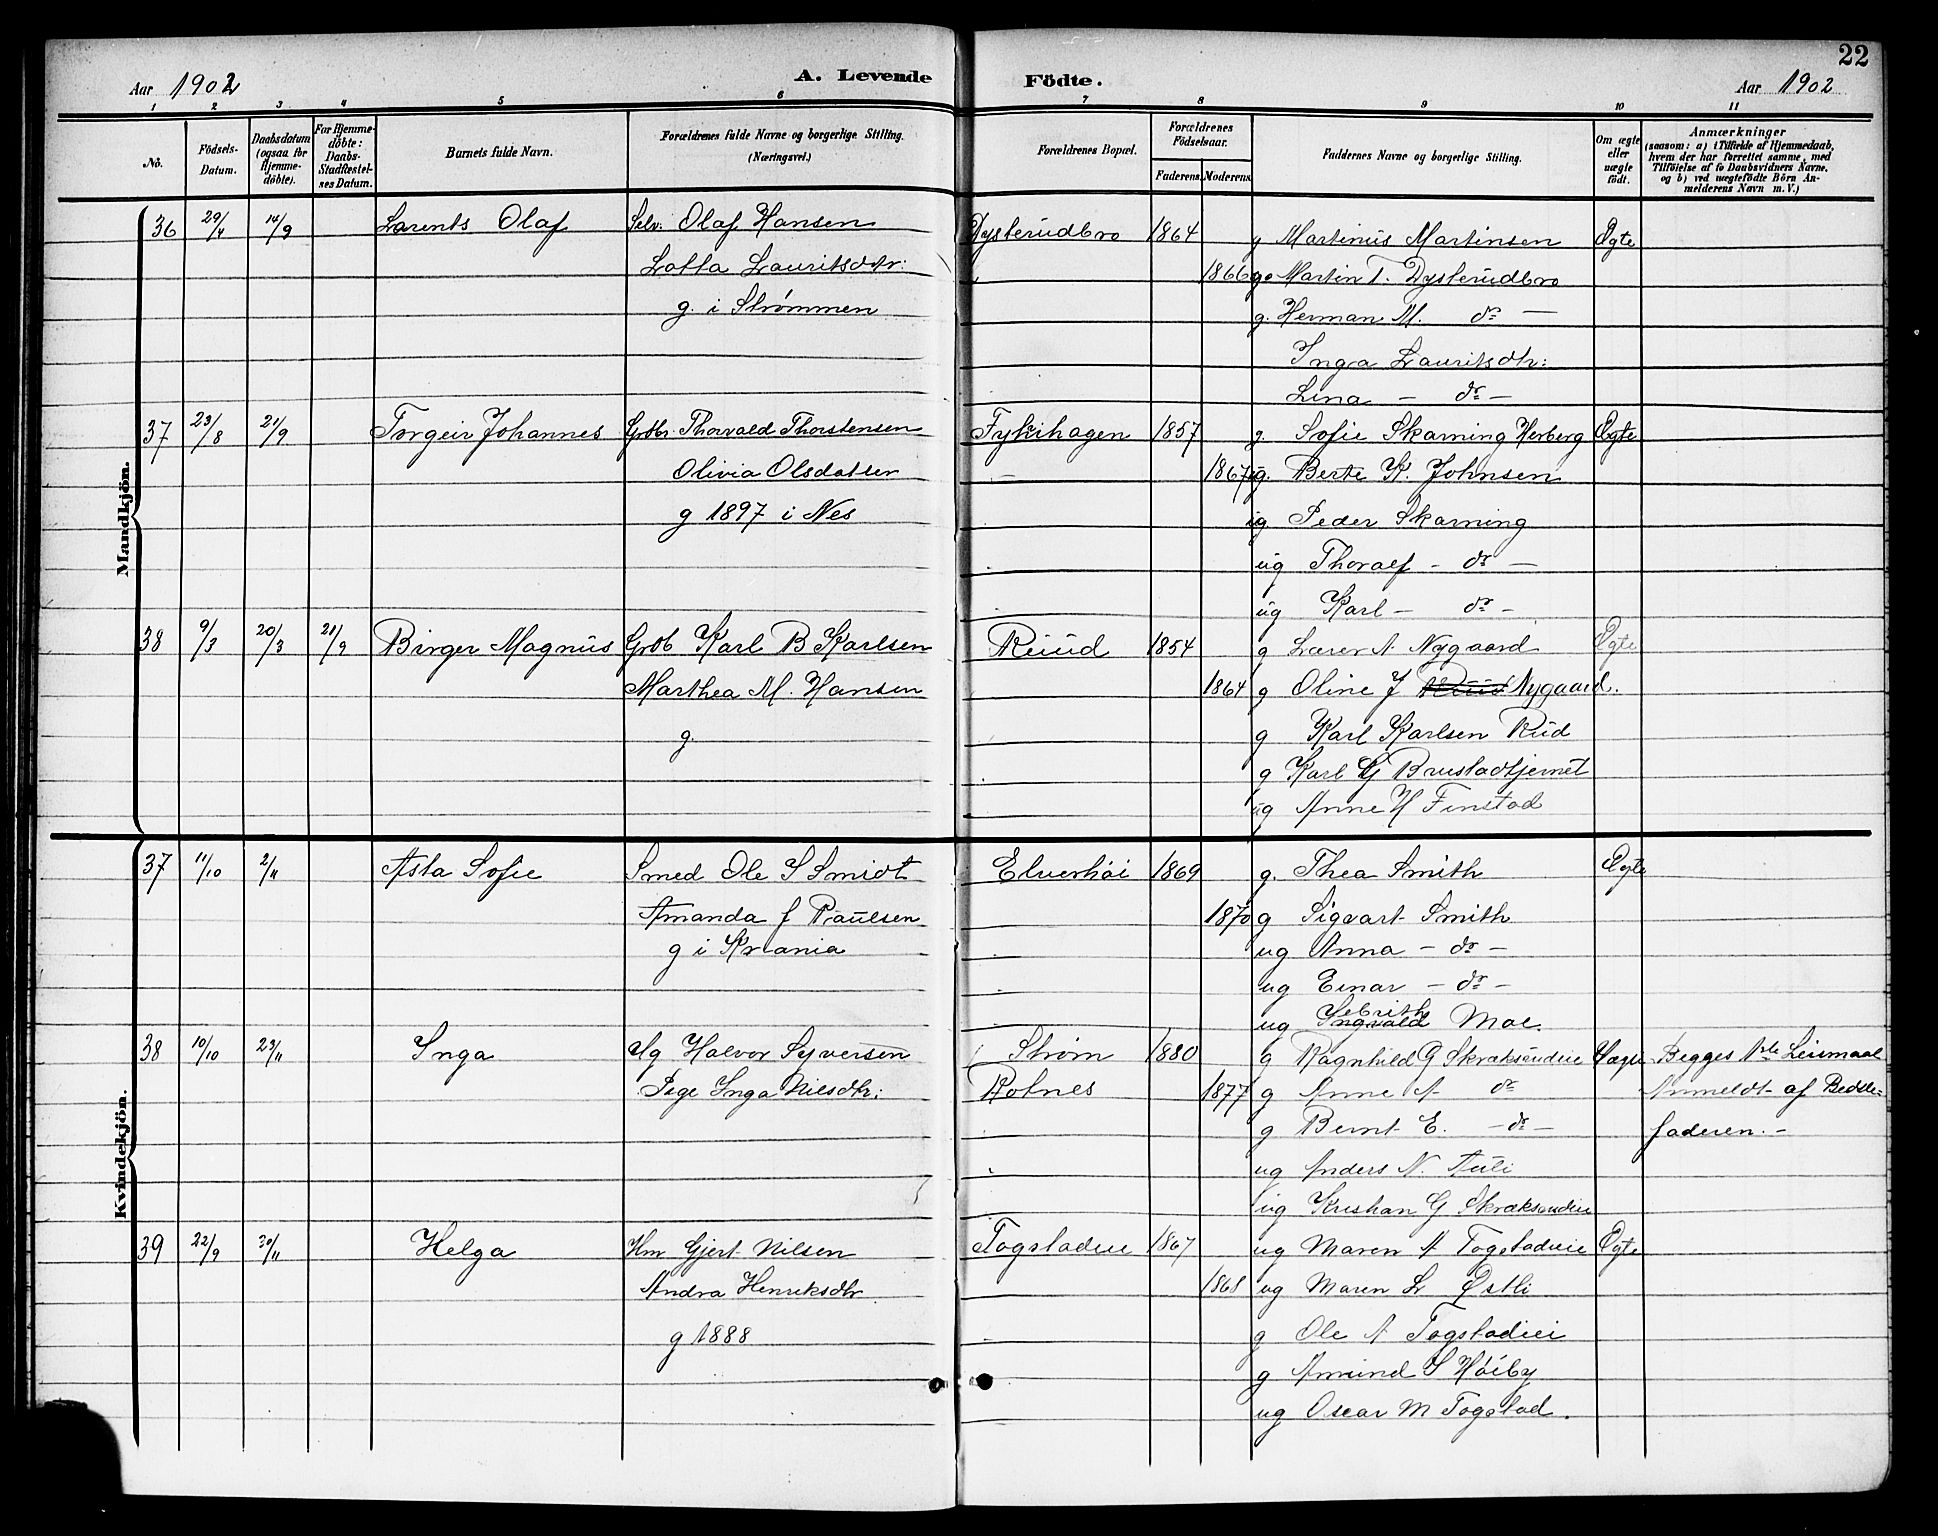 22
Aar 1902
A. Levende
Födte.
Aar 1902
1 2 3 4 5 6 7 8 9 10 11
No.
Födsels-Datum.
Daabsdatum (ogsaa for Hjemme-döbte).
For Hjemme-döbte: Daabs-Stadfæstel-ses Datum.
Barnets fulde Navn.
Forældrenes fulde Navne og borgerlige Stilling.
(Næringsvei.)
Forældrenes Bopæl.
Forældrenes Födselsaar.
Faderens. Moderens.
Faddernes Navne og borgerlige Stilling.
Om ægte eller uægte födt.
Anmærkninger
(saasom: a) i Tilfælde af Hjemmedaab,
hvem der har forrettet samme, med
Tilföielse af to Daabsvidners Navne,
og b) ved uægtefödte Börn An-
melderens Navn m. V.)
Mandkjön.
36 29/4 14/9 Larents Olaf Selv. Olaf Hansen Dysterudbro 1864 g Martinus Martinsen Ægte
Lotta Lauritsdtr: 1866 g. Martin T. Dysterudbro
g. i Strømmen g. Herman M. do —
Inga Lauritsdtr:
Lina — do —
37 23/8 21/9 Torgeir Johannes Grbbr. Thorvald Thorstensen Fykihagen 1857 g. Sofie Skarning Herberg Ægte
Olivia Olsdatter — 1867 ug. Berte K. Johnsen
g 1897 i Nes ug Peder Skarning
ug Thoralf - do —
ug Karl — do -
38 9/3 20/3 21/9 Birger Magnus Grbb Karl B Karlsen Ruud 1854 g Lærer A. Nygaard Ægte
Marthea M. Hansen 1864 g Oline J Ruud Nygaard.
g. g Karl Karlsen Rud
g Karl G Brustadtjernet
ug Anne H Finstad
Kvindekjön.
37 11/10 2/11 Asta Sofie Smed Ole S Smidt Elverhöi 1869 g. Thea Smith Ægte
Amanda J Paulsen 1870 g Sigvart Smith
g i Krania ug Anna — do —
ug Einar — do —
ug Ingvald Moe.
38 10/10 23/11 Inga Ug Halvor Syversen Strøm 1880 g Ragnhild G Skræksrudeie Uægte Begges 1ste Leiermaal
Pige Inga Nilsdtr: Rotnes 1877 g Anne A do Anmeldt af Bedste-
g Bernt E. — do — faderen. -
ug Anders N. Auli
ug Kristian G Skræksrudeie
39 22/9 30/11 Helga Hm Gjert Nilsen Togstadeie 1867 ug Maren A Togstadeie Ægte
Andra Henriksdtr 1868 ug Maren L Østli
g 1888 g Ole A Togstadeie
g Amund S Höiby
ug Oscar M Togstad.